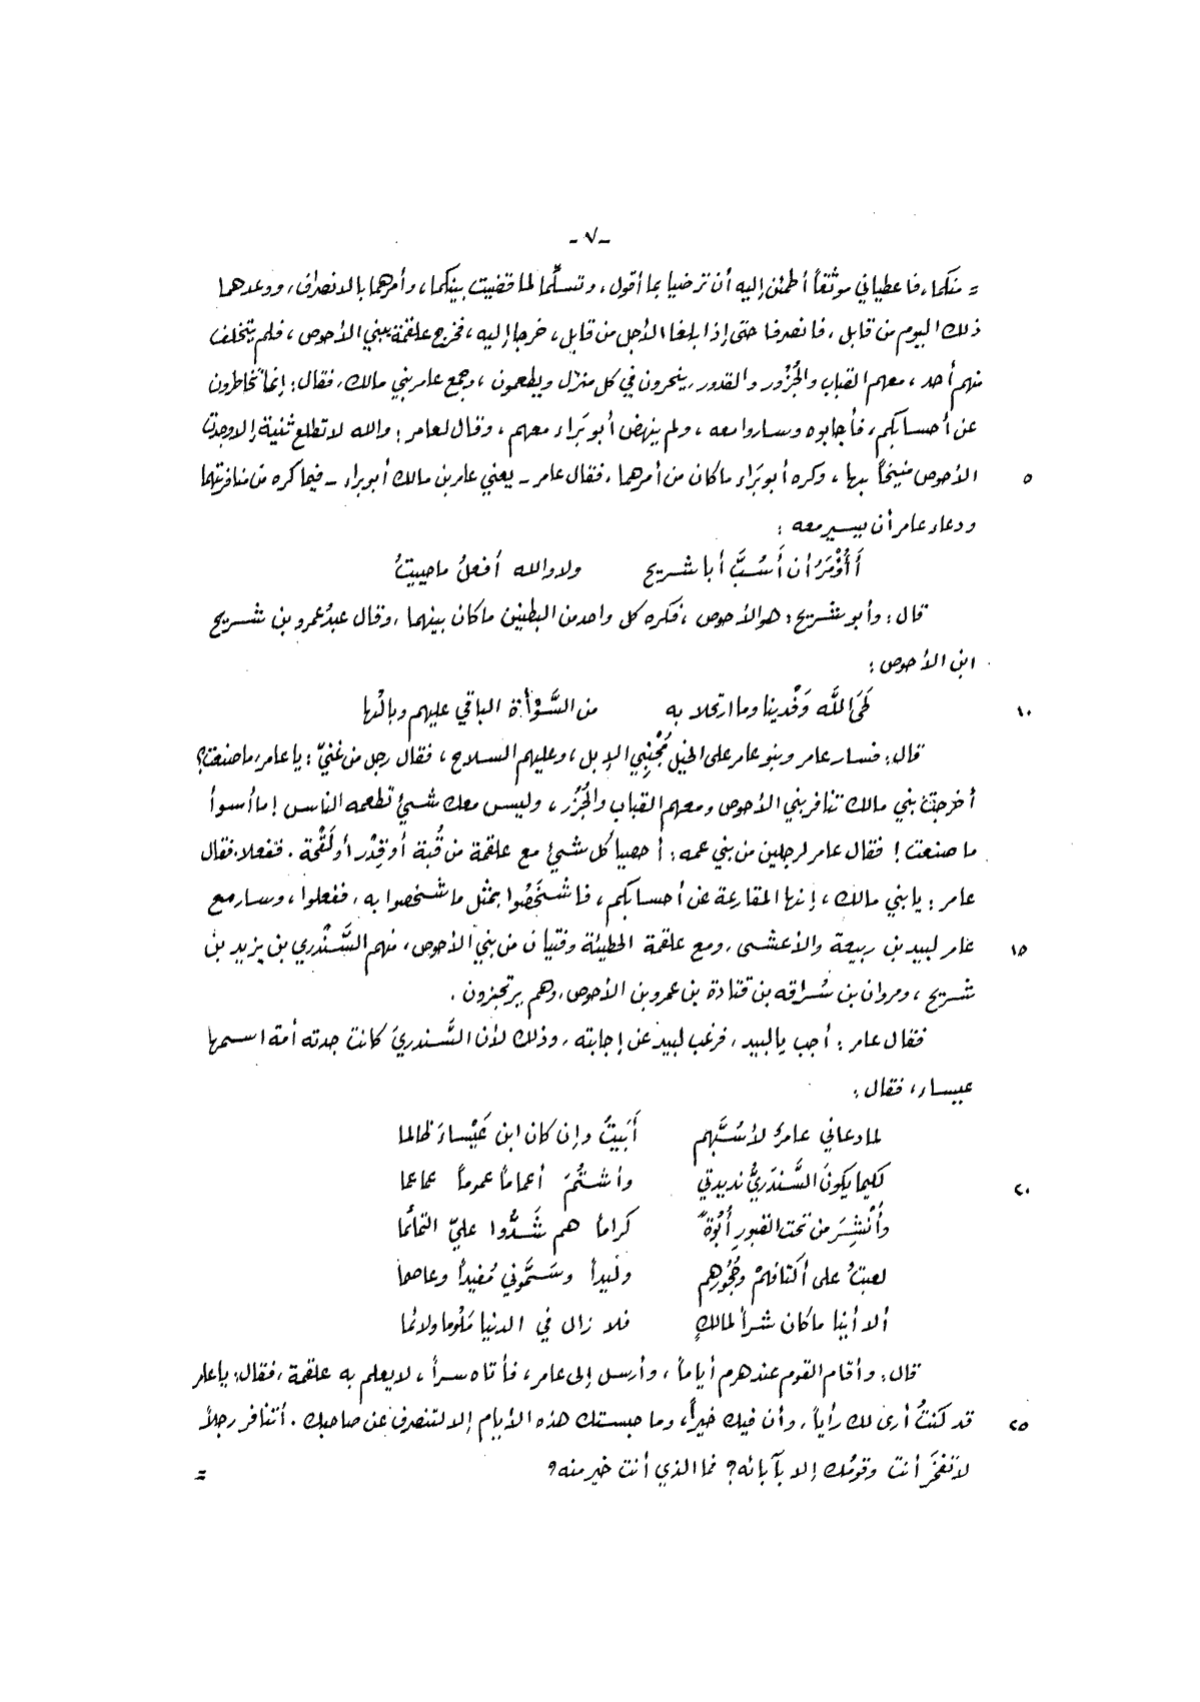 ـ ٧ ـ
= منكما، فاعطياني موثقاً أطمئن إليه أن ترضيا بما أقول، وتسلِّما لما قضيت بينكما، وأمرهما بالانصراف، ووعدهما
ذلك اليوم من قابل، فانصرفا حتى إذا بلغا الأجل من قابل، خرجا إليه، فخرج علقمة ببني الأحوص، فلم يتخلف
منهم أحد، معهم القباب والجُزُور والقدور، ينحرون في كل منزل ويطعمون، وجمع عامر بني مالك، فقال: إنما تخاطرون
عن أحسابكم، فأجابوه وساروا معه، ولم ينهض أبو بَراء معهم، وقال لعامر: والله لا تطلع ثنية إلا وجدت
الأحوص منيخاً بها، وكره أبو بَراء ما كان من أمرهما، فقال عامر ـ يعني عامر بن مالك أبو براء ـ فيما كره من منافرتهما ٥
ودعاء عامر أن يسير معه:
أَأُوْمَرُ أن أَسُبَّ أبا شريح ولا والله أفعلُ ما حييتُ
قال: وأبو شريح: هو الأحوص، فكره كل واحد من البطنين ما كان بينهما، وقال عبدُ عمرو بن شريح
ابن الأحوص:
لَحَى اللَّه وَفْدينا وما ارتحلا به من السَّوْأة الباقي عليهم وبالُها ١٠
قال: فسار عامر وبنو عامر على الخيل مُجْنِبي الإبل، وعليهم السلاح، فقال رجل من غنيّ: يا عامر، ما صنعت؟
أخرجتَ بني مالك تنافر بني الأحوص ومعهم القباب والجُزُر، وليس معك شيئ تطعمه الناس! ما أسوأ
ما صنعت! فقال عامر لرجلين من بني عمه: أحصيا كل شيئ مع علقمة من قُبة أو قِدْر أو لَقْحة. ففعلا، فقال
عامر: يا بني مالك، إنها المقارعة عن أحسابكم، فاشخَصُوا بمثل ما شخصوا به، ففعلوا، وسار مع
عامر لبيد بن ربيعة والأعشى، ومع علقمة الحطيئة وفتيان من بني الأحوص، منهم السَّنْدري بن يزيد بن ١٥
شريح، ومروان بن سُراقه بن قتادة بن عمرو بن الأحوص، وهم يرتجزون.
فقال عامر: أجب يا لبيد، فرغب لبيد عن إجابته، وذلك لأن السَّندريَ كانت جدته أمة اسمها
عيساء، فقال:
لما دعاني عامرٌ لأسُبَّهم أَبَيتُ وإن كان ابن عَيْساءَ ظالما
لكيما يكونَ السَّندَريُّ نديدتي وأشتُمَ أعماماً عموماً عماعما ٢٠
وأُنْشِرَ من تحت القبورِ أُبُوّةً كراماً هم شَدُّوا عليّ التمائما
لعبتُ على أكتافهمْ وحُجُورِهم وليداً وسَمَّوني مُفيداً وعاصما
ألا أينا ما كان شراً لمالكٍ فلا زال في الدنيا مَلُوما ولائما
قال: وأقام القوم عند هرم أياماً، وأرسل إلى عامر، فأتاه سراً، لا يعلم به علقمة، فقال: يا عامر
قد كنتُ أرى لك رأياً، وأن فيك خيراً، وما حبستك هذه الأيام إلا لتنصرف عن صاحبك. أتنافر رجلاً ٢٥
لا تَفخَر أنت وقومُك إلا بآبائه؟ فما الذي أنت خير منه؟ =